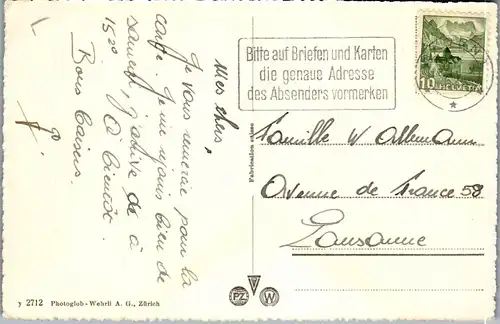 Mes chers,
Je vous remercie pour la
carte. Je me réjouis bien de
samedi, j'arrive de à
15²⁰. à bientôt.
Bons baisers
Bitte auf Briefen und Karten
die genaue Adresse
des Absenders vormerken
10 HELVETIA
Famille W Allemann
Avenue de France 58
Lausanne
Fabrication suisse
PZ W
y 2712 Photoglob-Wehrli A. G., Zürich